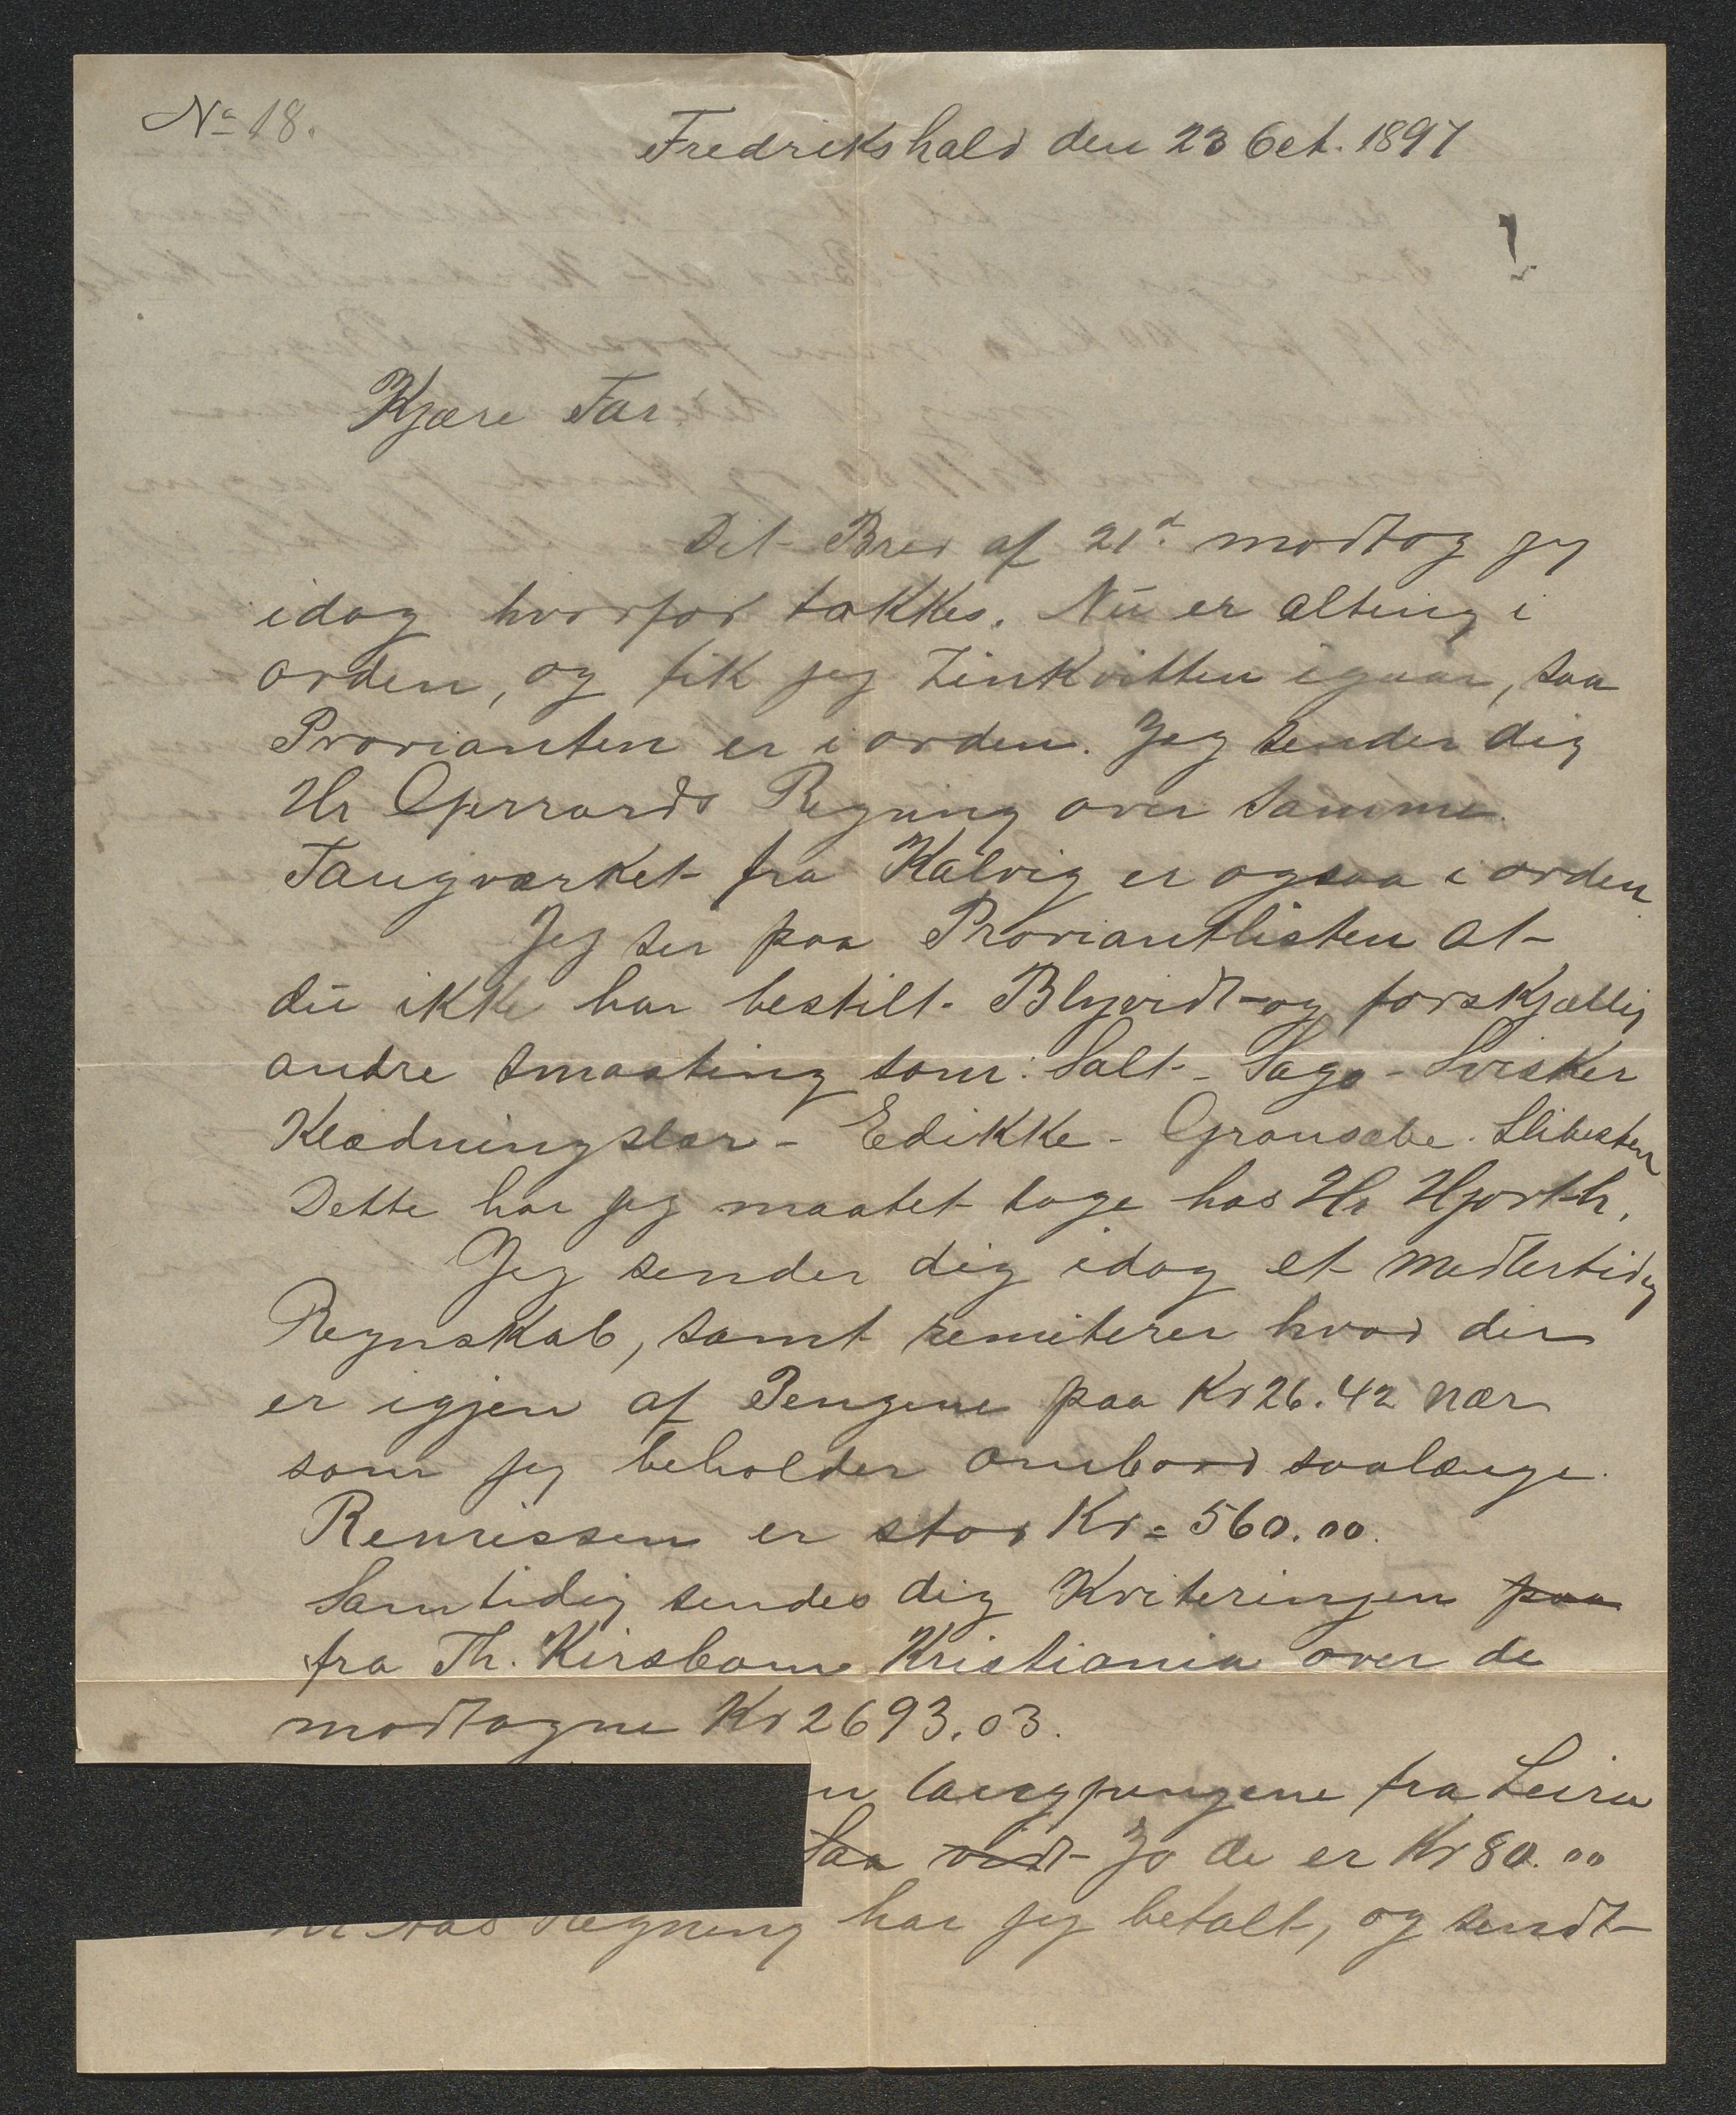 No 18.
Fredrikshald den 23 Oct. 1897
!
Kjære Far
Dit Brev af 21d. modtog jeg
idag hvorfor takkes. Nu er alting i
orden, og fik jeg Zinkvitten igaar, saa
Provianten er i orden. Jeg sender dig
Hr Gjerrards Regning over samme.
Taugværket fra Kalvig er ogsaa i orden
Jeg ser paa Proviantlisten at
du ikke har bestilt Blyvidt og forskjællig
andre smaating som: Salt - Sago - Svisker
Klædningslær - Edikke - Grønsæbe - Slibesten
Dette har jeg maatet tage hos Hr Hjorth.
Jeg sender dig idag et medlertidig
Regnskab, samt remiterer hvad der
er igjen af Pengene paa Kr 26.42 nær
som jeg beholder ombord saalænge.
Remissen er stor Kr = 560.00.
Samtidig sendes dig Kviteringen paa
fra Th. Kirsbom Kristiania over de
modtagne Kr 2693.03.
fra Leira
Saa vidt Jo de er Kr 80.00
Regning har jeg betalt, og sendt